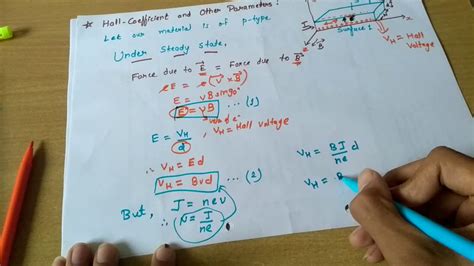 * Hall-Coefficient and Other Parameters:
Let our material is of p-type.
Under Steady state,
Force due to E⃗ = Force due to B⃗
eE = e(V⃗ × B⃗)
E = vB sin90°
E = vB ... (1)
E = V_H / d, V_H = Hall Voltage
∴ V_H = Ed
V_H = Bvd ... (2)
But, J = nev
∴ v = J / ne
x
I
Surface 1
B⃗
V_H = Hall
Voltage
V_H = BJ / ne d
V_H = B